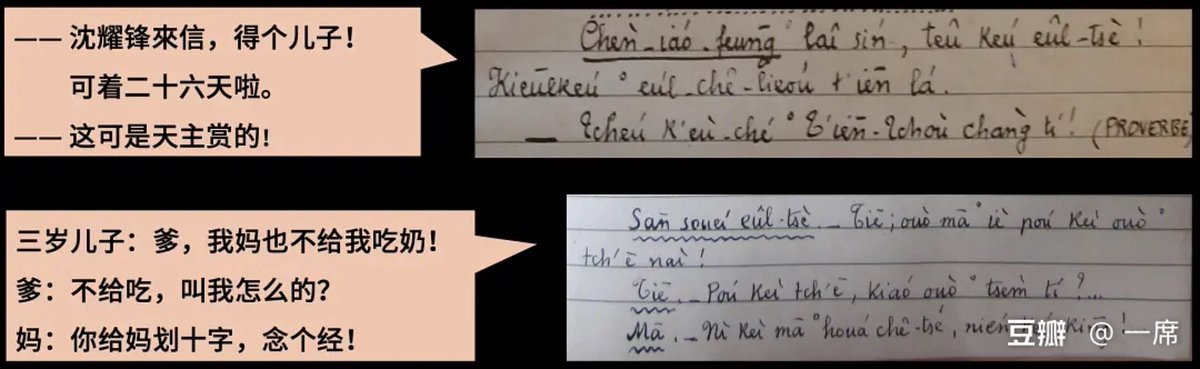 —— 沈耀锋來信，得个儿子！
可着二十六天啦。
—— 这可是天主赏的！
Chèn-iáo-feūng° laî sín, teû keú eûl-tsè !
eúl-chê-lieoú t'iēn lá.
— Tcheú k'eù-ché° T'iēn-Tchoù chàng tí ! (PROVERBE)
三岁儿子：爹，我妈也不给我吃奶！
爹：不给吃，叫我怎么的？
妈：你给妈划十字，念个经！
Sān soueí eûl-tsè._ Tiē; ouò mā° iè poú keì ouò°
tch'ē naì !
Tiē._ Poú keì tch'ē, kiaó ouò° tsèm tí ?...
Mā._ Nì keì mā° houá chê-tsé, nién
豆瓣 @一席